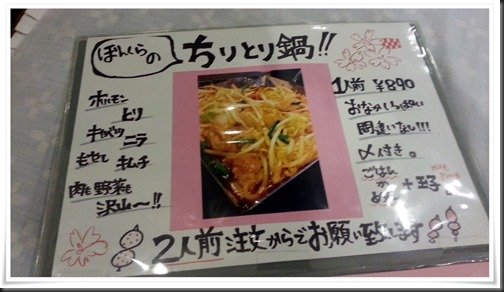 ほんくらの
ちりとり鍋!!
ホルモン
とり
キャベツ ニラ
もやし キムチ
肉も野菜も
沢山〜!!
1人前 ¥890
おなかいっぱい
間違いなし!!!
〆付き。
ごはん
か
めん
+玉子
2人前注文からでお願い致します